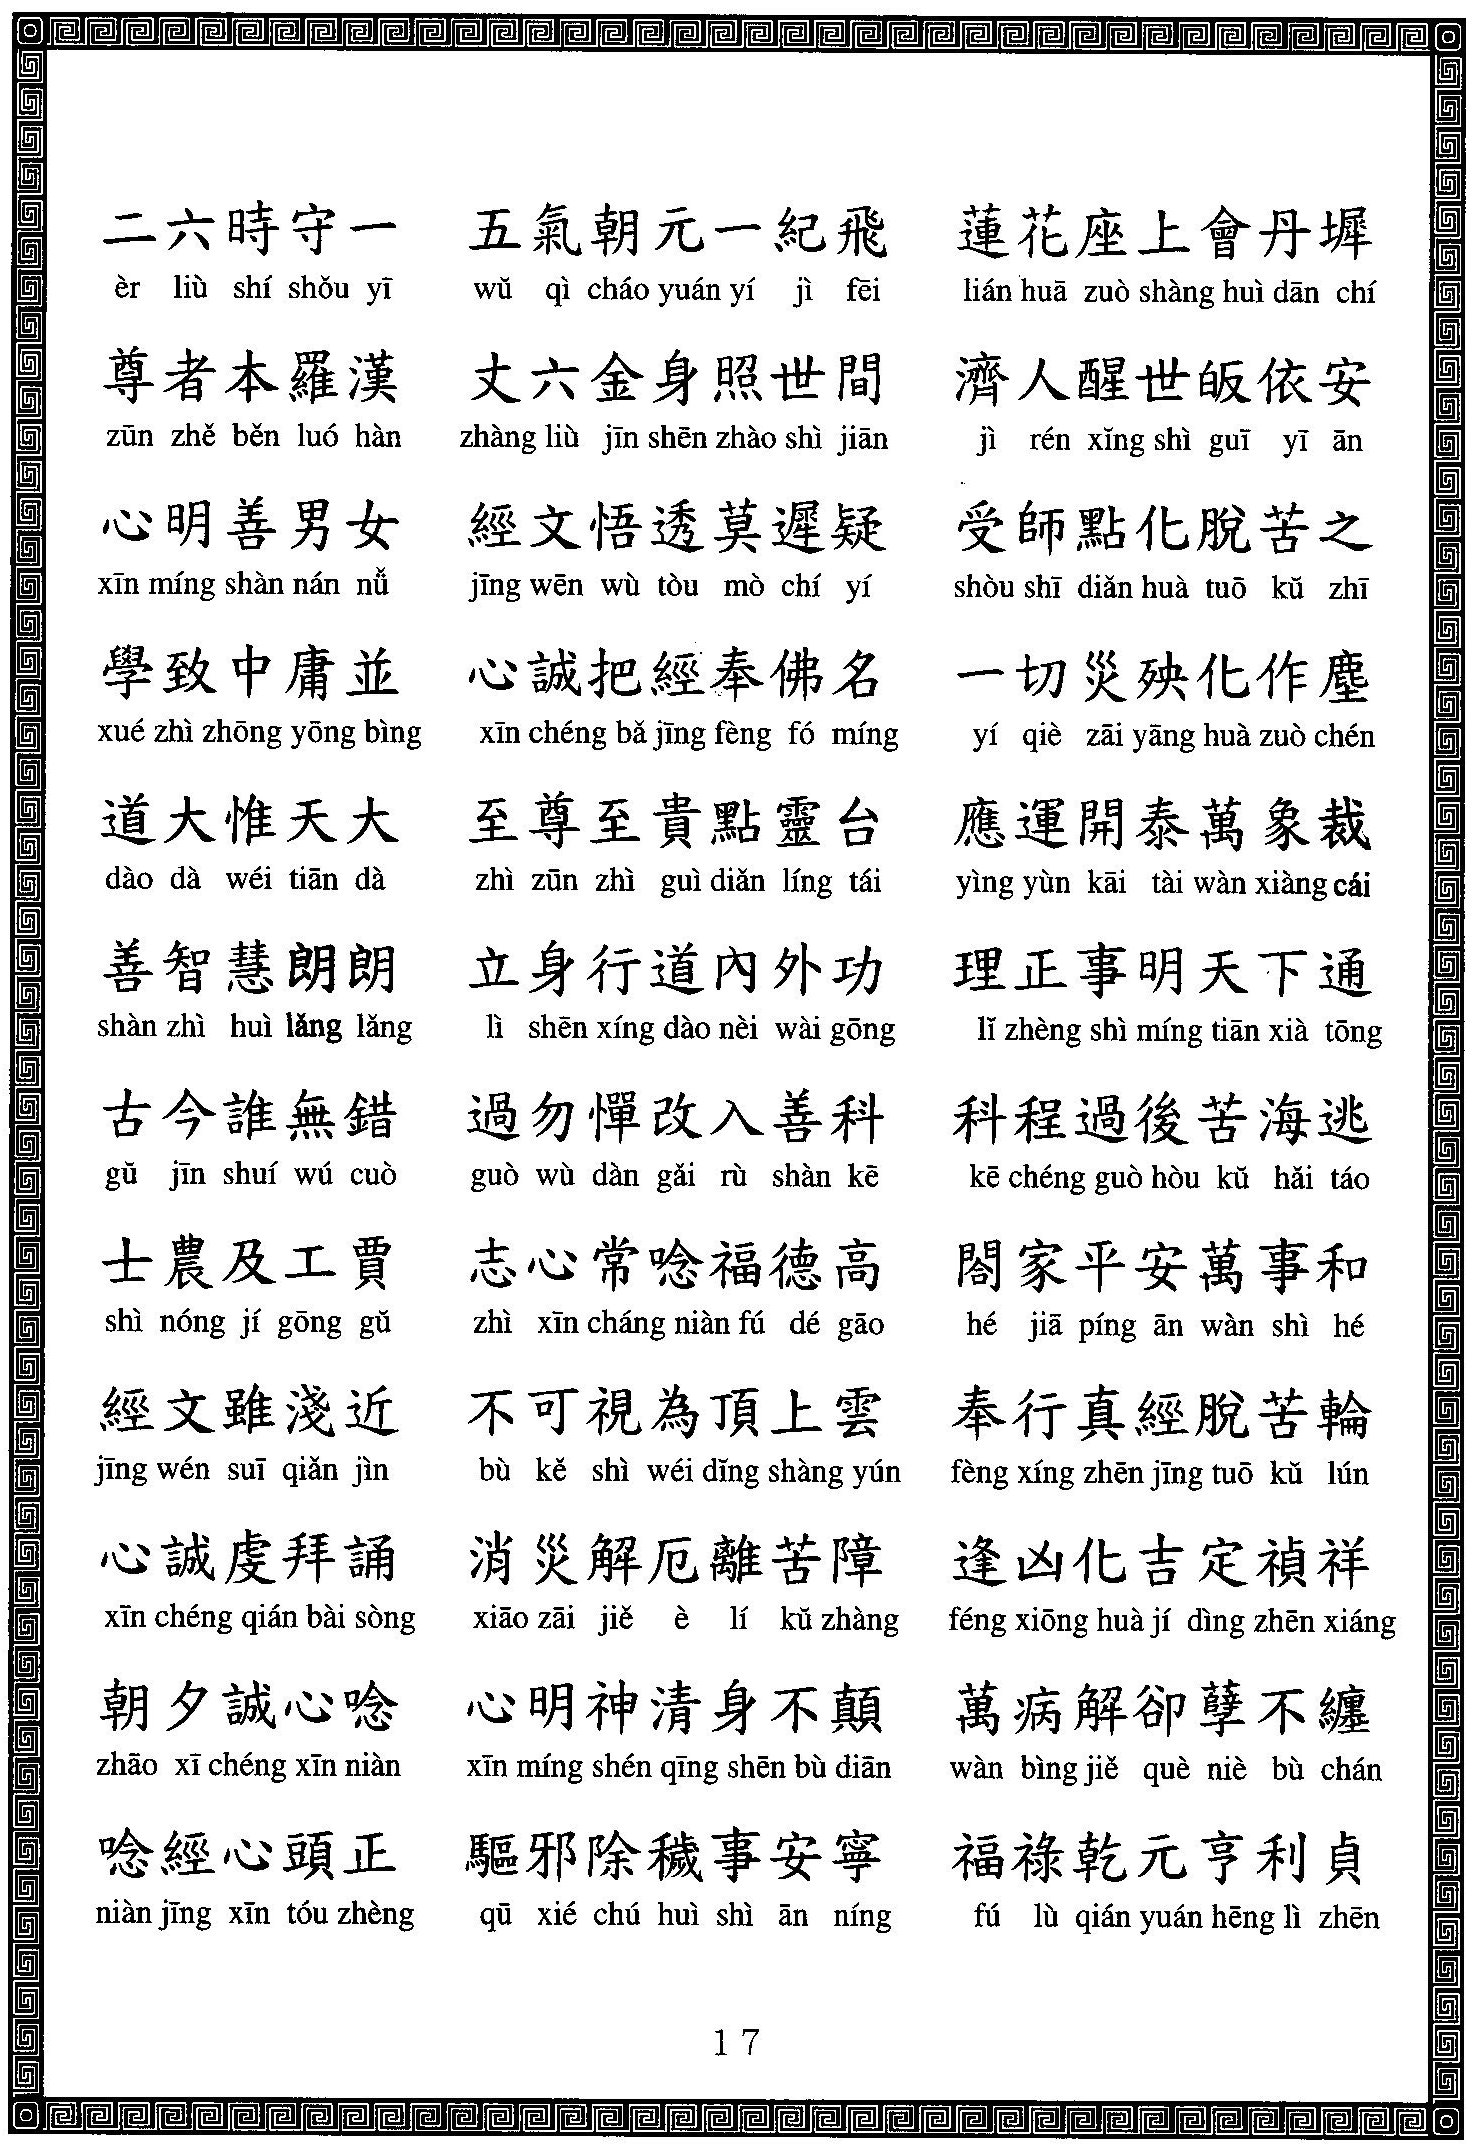 二六時守一 五氣朝元一紀飛 蓮花座上會丹墀
èr liù shí shǒu yī wǔ qì cháo yuán yí jì fēi lián huā zuò shàng huì dān chí
尊者本羅漢 丈六金身照世間 濟人醒世皈依安
zūn zhě běn luó hàn zhàng liù jīn shēn zhào shì jiān jì rén xǐng shì guī yī ān
心明善男女 經文悟透莫遲疑 受師點化脫苦之
xīn míng shàn nán nǚ jīng wēn wù tòu mò chí yí shòu shī diǎn huà tuō kǔ zhī
學致中庸並 心誠把經奉佛名 一切災殃化作塵
xué zhì zhōng yōng bìng xīn chéng bǎ jīng fèng fó míng yí qiè zāi yāng huà zuò chén
道大惟天大 至尊至貴點靈台 應運開泰萬象裁
dào dà wéi tiān dà zhì zūn zhì guì diǎn líng tái yìng yùn kāi tài wàn xiàng cái
善智慧朗朗 立身行道內外功 理正事明天下通
shàn zhì huì lǎng lǎng lì shēn xíng dào nèi wài gōng lǐ zhèng shì míng tiān xià tōng
古今誰無錯 過勿憚改入善科 科程過後苦海逃
gǔ jīn shuí wú cuò guò wù dàn gǎi rù shàn kē kē chéng guò hòu kǔ hǎi táo
士農及工賈 志心常唸福德高 閤家平安萬事和
shì nóng jí gōng gǔ zhì xīn cháng niàn fú dé gāo hé jiā píng ān wàn shì hé
經文雖淺近 不可視為頂上雲 奉行真經脫苦輪
jīng wén suī qiǎn jìn bù kě shì wéi dǐng shàng yún fèng xíng zhēn jīng tuō kǔ lún
心誠虔拜誦 消災解厄離苦障 逢凶化吉定禎祥
xīn chéng qián bài sòng xiāo zāi jiě è lí kǔ zhàng féng xiōng huà jí dìng zhēn xiáng
朝夕誠心唸 心明神清身不顛 萬病解卻孽不纏
zhāo xī chéng xīn niàn xīn míng shén qīng shēn bù diān wàn bìng jiě què niè bù chán
唸經心頭正 驅邪除穢事安寧 福祿乾元亨利貞
niàn jīng xīn tóu zhèng qū xié chú huì shì ān níng fú lù qián yuán hēng lì zhēn
17